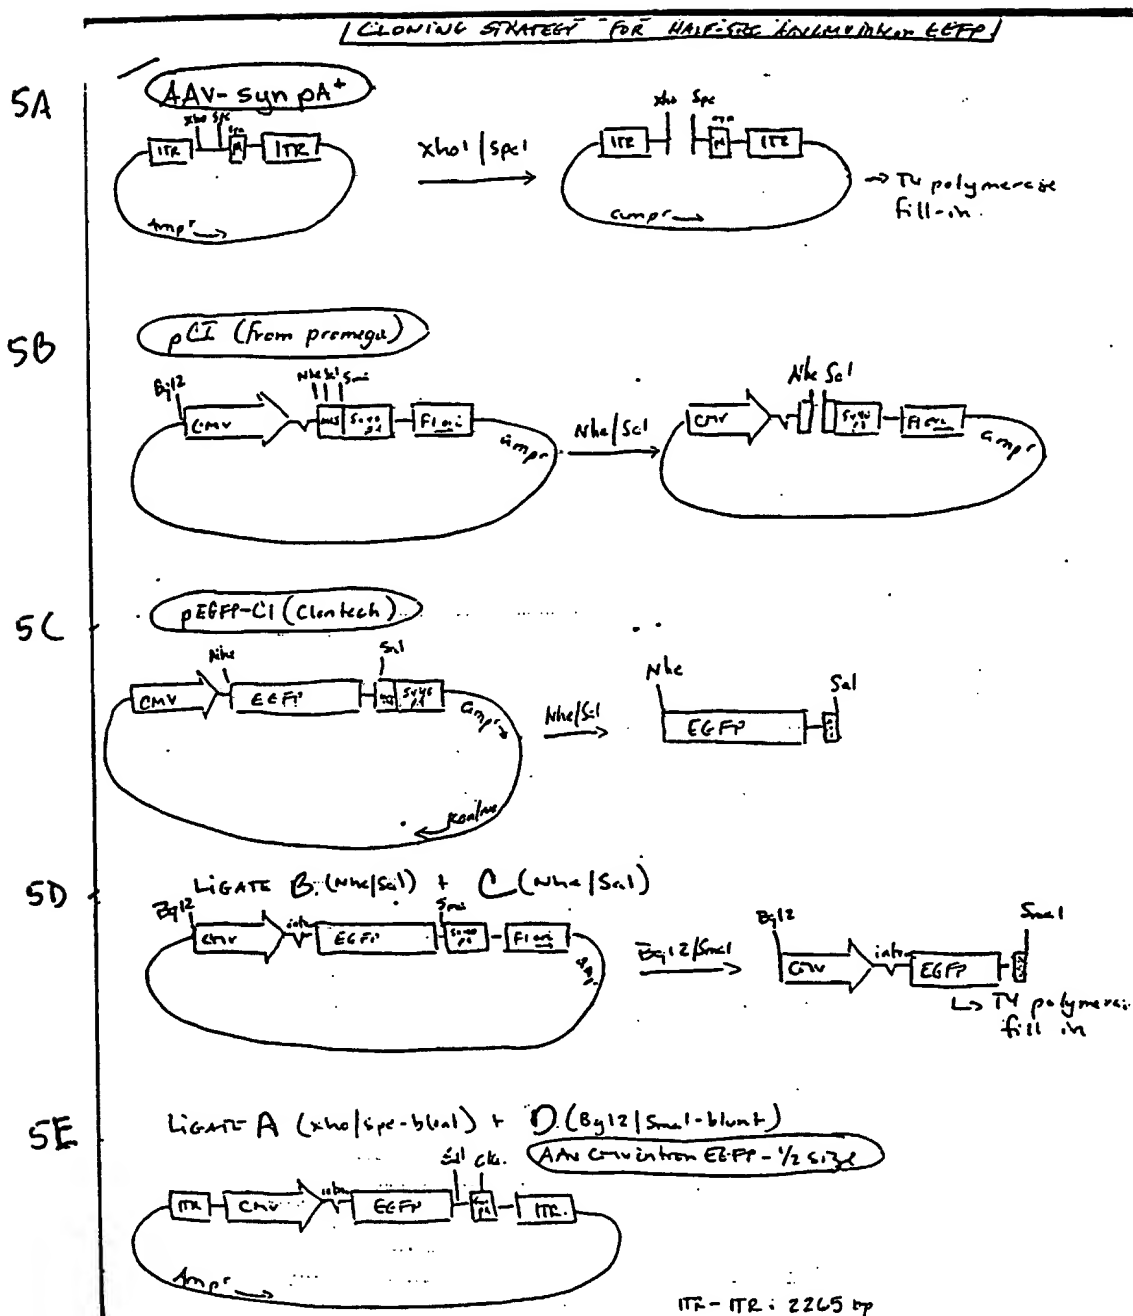 CLONING STRATEGY FOR HALF-SIZE EGFP
5A
AAV-syn pA+
Xho Spe
ITR pA ITR
Ampr
Xho1/Spe1
Xho Spe
ITR pA ITR
ampr
→ T4 polymerase
fill-in.
5B
pCI (from promega)
Bgl2 Nhe Sal Sma
CMV MCS SV40 pA F1 ori
ampr
Nhe/Sal
Nhe Sal
CMV SV40 pA F1 ori
ampr
5C
pEGFP-C1 (Clontech)
Nhe Sal
CMV EGFP SV40 pA
ampr
Kan/neo
Nhe/Sal
Nhe Sal
EGFP
5D
LIGATE B. (Nhe/Sal) + C (Nhe/Sal)
Bgl2 Sma1
CMV intr EGFP SV40 pA F1 ori
Bgl2/Sma1
Bgl2 Sma1
CMV intr EGFP
↳ T4 polymerase
fill in
5E
LIGATE A (xho/spe-blunt) + D. (Bgl2/Sma1-blunt)
AAV CMV intron EGFP - 1/2 size
Sal Cla.
ITR CMV intr EGFP pA ITR.
Ampr
ITR-ITR: 2265 bp